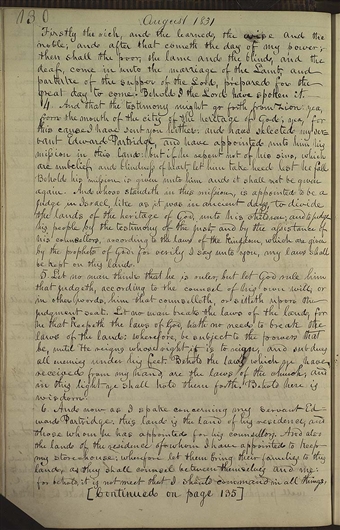 130
August 1831
Firstly the rich, and the learned, the wise and the
noble; and after that cometh the day of my power;
then shall the poor, the lame and the blind, and the
deaf, come in unto the marriage of the Lamb, and
partake of the supper of the Lord, prepared for the
great day to come. Behold I the Lord have spoken it.
4. And that the testimony might go forth from Zion: yea,
from the mouth of the city of the heritage of God: yea, for
this cause I have sent you hither: and have selected my ser-
vant Edward Partridge, and have appointed unto him his
mission in this land: but if he repent not of his sins, which
are unbelief and blindness of heart, let him take heed lest he fall.
Behold his mission is given unto him and it shall not be given
again. And whoso standeth in this mission, is appointed to be a
judge in Israel, like as it was in ancient days, to divide
the lands of the heritage of God unto his children; and to judge
his people by the testimony of the just, and by the assistance of
his counsellors, according to the laws of the kingdom, which are given
by the prophets of God: for verily I say unto you, my laws shall
be kept on this land.
5. Let no man think that he is ruler, but let God rule him
that judgeth, according to the counsel of his own will: or
in other words, him that counselleth, or sitteth upon the
judgment seat. Let no man break the laws of the land, for
he that keepeth the laws of God, hath no need to break the
laws of the land: wherefore, be subject to the powers that
be, until He reigns whose right it is to reign, and subdues
all enemies under his feet. Behold the laws which ye have
received from my hand, are the laws of the church; and
in this light ye shall hold them forth. Behold here is
wisdom.
6. And now as I spake concerning my servant Ed-
ward Partridge: this land is the land of his residence, and
those whom he has appointed for his counsellors. And also
the land of the residence of whom I have appointed to keep
my storehouse: wherefore let them bring their families to this
land, as they shall counsel between themselves and me:
for behold, it is not meet that I should command in all things,
[continued on page 135]